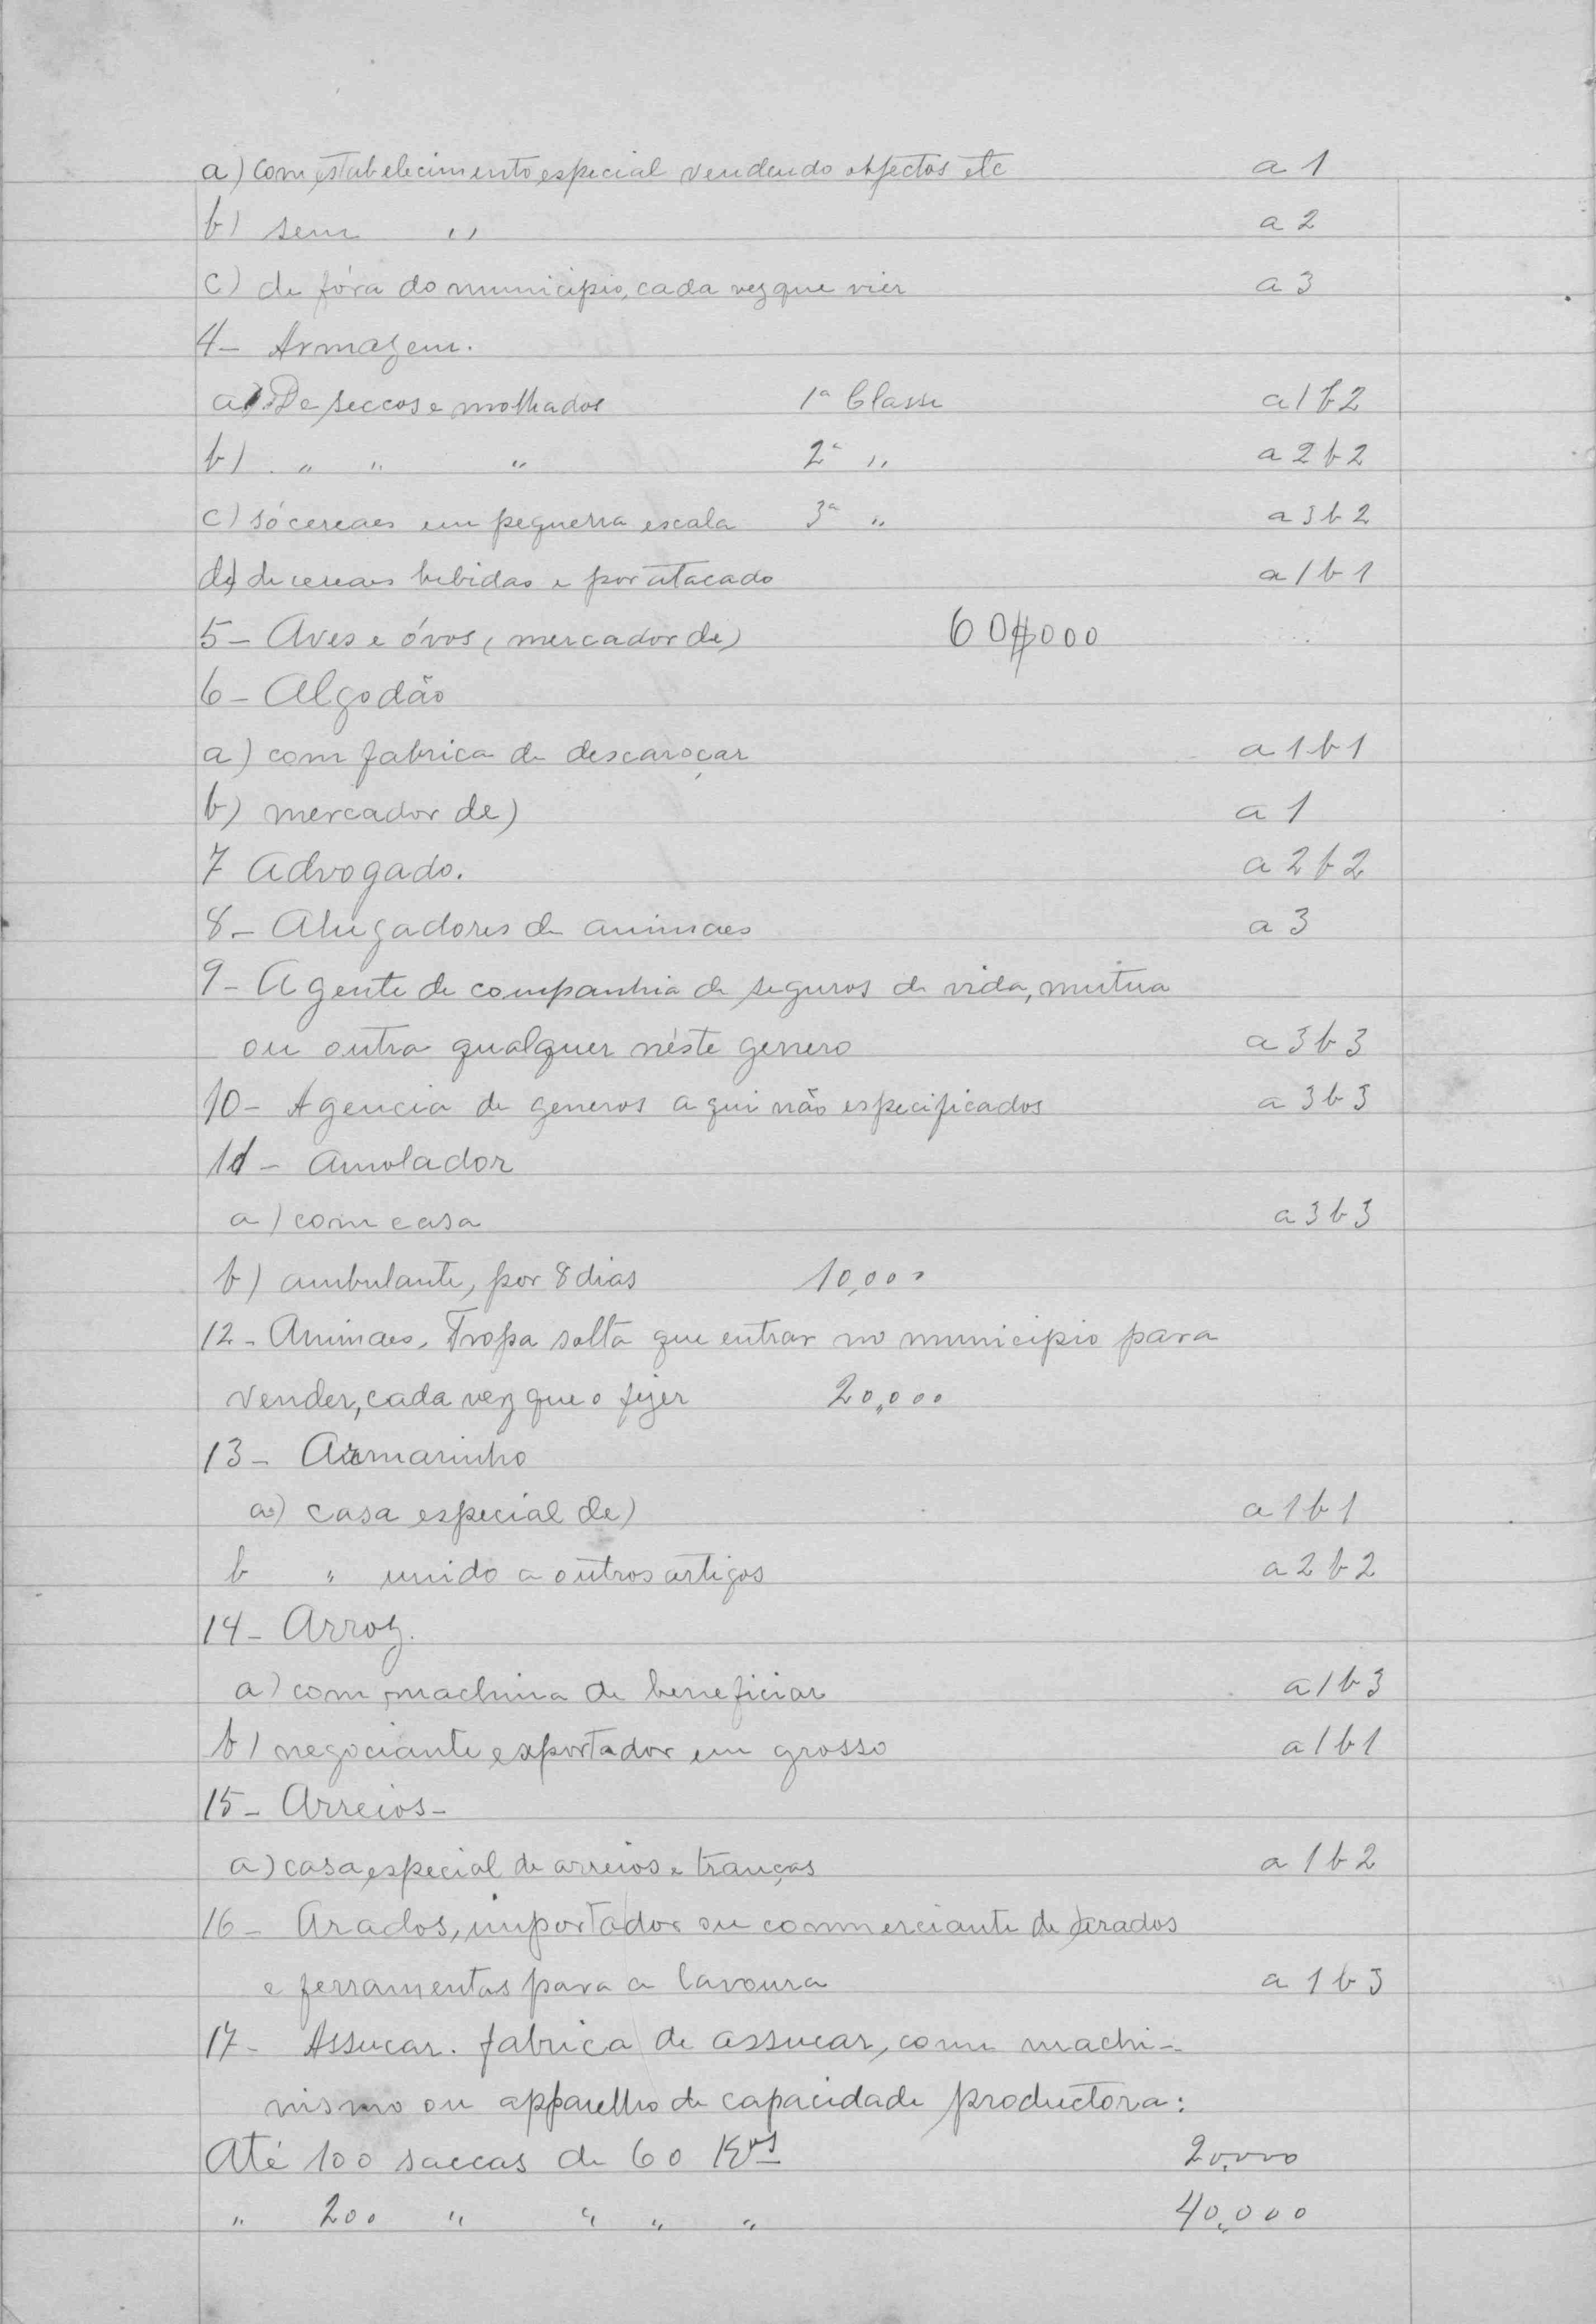 a) com estabelecimento especial vendendo objectos etc a 1
b) sem " a 2
c) de fóra do municipio, cada vez que vier a 3
4- Armazem.
a) De seccos e molhados 1ª Classe a 1 b 2
b) " " " 2ª " a 2 b 2
c) só cereaes em pequena escala 3ª " a 3 b 2
d) de cereaes bebidas e por atacado a 1 b 1
5- Aves e óvos (mercador de) 60$000
6- Algodão
a) com fabrica de descaroçar a 1 b 1
b) mercador de) a 1
7 Advogado. a 2 b 2
8- Alugadores de animaes a 3
9- Agente de companhia de seguros de vida, mutua
ou outra qualquer néste genero a 3 b 3
10- Agencia de generos aqui não especificados a 3 b 3
11- Amolador
a) com casa a 3 b 3
b) ambulante, por 8 dias 10,000
12- Animaes. Tropa solta que entrar no municipio para
vender, cada vez que o fizer 20,000
13- Armarinho
a) casa especial de) a 1 b 1
b " unido a outros artigos a 2 b 2
14- Arroz.
a) com machina de beneficiar a 1 b 3
b) negociante exportador em grosso a 1 b 1
15- Arreios-
a) casa especial de arreios e tranças a 1 b 2
16- Arados, importador ou commerciante de arados
e ferramentas para a lavoura a 1 b 3
17- Assucar. fabrica de assucar, com machi-
nismo ou apparelho de capacidade productora:
Até 100 saccas de 60 Kos 20,000
" 200 " " " " 40,000